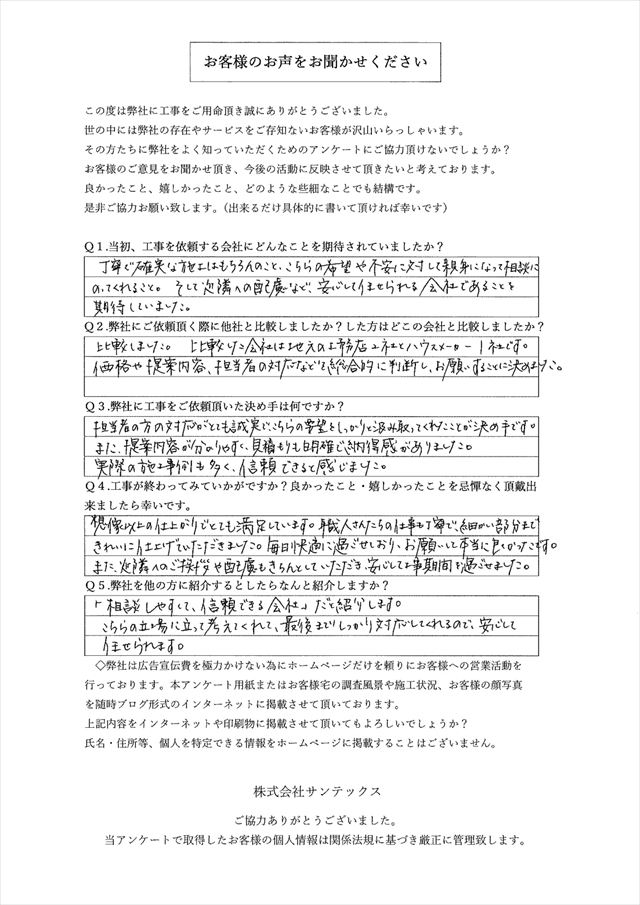 お客様のお声をお聞かせください
この度は弊社に工事をご用命頂き誠にありがとうございました。
世の中には弊社の存在やサービスをご存知ないお客様が沢山いらっしゃいます。
その方たちに弊社をよく知っていただくためのアンケートにご協力頂けないでしょうか？
お客様のご意見をお聞かせ頂き、今後の活動に反映させて頂きたいと考えております。
良かったこと、嬉しかったこと、どのような些細なことでも結構です。
是非ご協力お願い致します。（出来るだけ具体的に書いて頂ければ幸いです）
Q１.当初、工事を依頼する会社にどんなことを期待されていましたか？
丁寧で確実な施工はもちろんのこと、こちらの希望や不安に対して親身になって相談に
のってくれること。そして近隣への配慮など、安心して任せられる会社であることを
期待していました。
Q２.弊社にご依頼頂く際に他社と比較しましたか？した方はどこの会社と比較しましたか？
比較しました。比較した会社は地元の工務店2社とハウスメーカー1社です。
価格や提案内容、担当者の対応などで総合的に判断し、お願いすることに決めました。
Q３.弊社に工事をご依頼頂いた決め手は何ですか？
担当者の方の対応がとても誠実で、こちらの要望をしっかりと汲み取ってくれたことが決め手です。
また、提案内容が分かりやすく、見積もりも明確で納得感がありました。
実際の施工事例も多く、信頼できると感じました。
Q４.工事が終わってみていかがですか？良かったこと・嬉しかったことを忌憚なく頂戴出
来ましたら幸いです。
想像以上の仕上がりでとても満足しています。職人さんたちの仕事も丁寧で、細かい部分まで
きれいに仕上げていただきました。毎日快適に過ごせており、お願いして本当に良かったです。
また、近隣へのご挨拶や配慮もきちんとしていただき、安心して工事期間を過ごせました。
Q５.弊社を他の方に紹介するとしたらなんと紹介しますか？
「相談しやすくて、信頼できる会社」だと紹介します。
こちらの立場に立って考えてくれて、最後までしっかり対応してくれるので、安心して
任せられます。
◇弊社は広告宣伝費を極力かけない為にホームページだけを頼りにお客様への営業活動を
行っております。本アンケート用紙またはお客様宅の調査風景や施工状況、お客様の顔写真
を随時ブログ形式のインターネットに掲載させて頂いております。
上記内容をインターネットや印刷物に掲載させて頂いてもよろしいでしょうか？
氏名・住所等、個人を特定できる情報をホームページに掲載することはございません。
株式会社サンテックス
ご協力ありがとうございました。
当アンケートで取得したお客様の個人情報は関係法規に基づき厳正に管理致します。